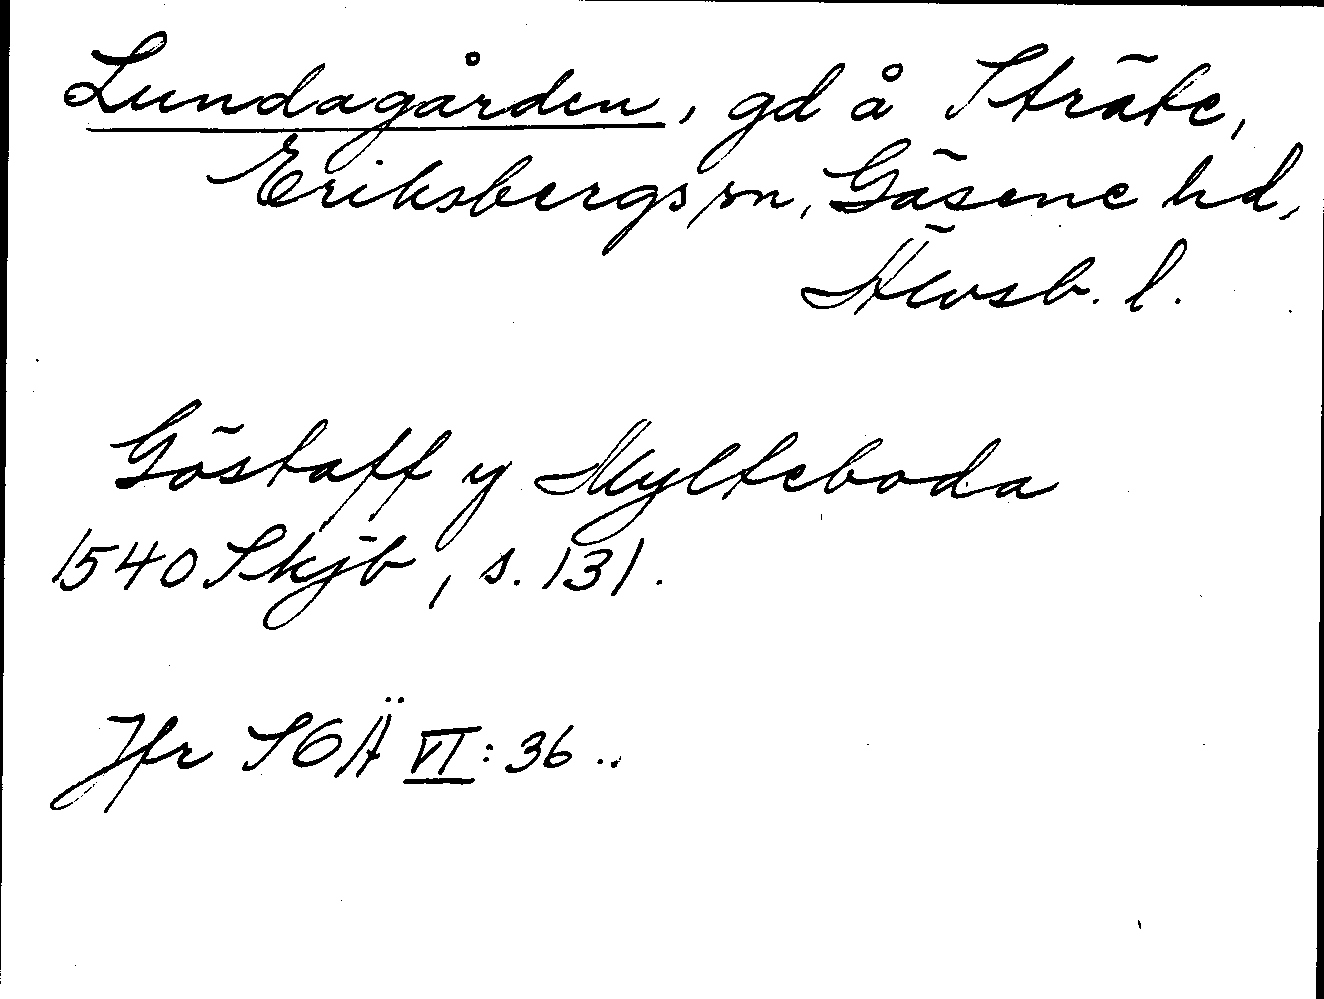 Lundagården, gd å Sträte,
Eriksbergs sn, Gäsene hd,
Älvsb. l.
Göstaff y Mylteboda
1540 Skjb, s. 131.
Jfr SOÄ VI: 36..